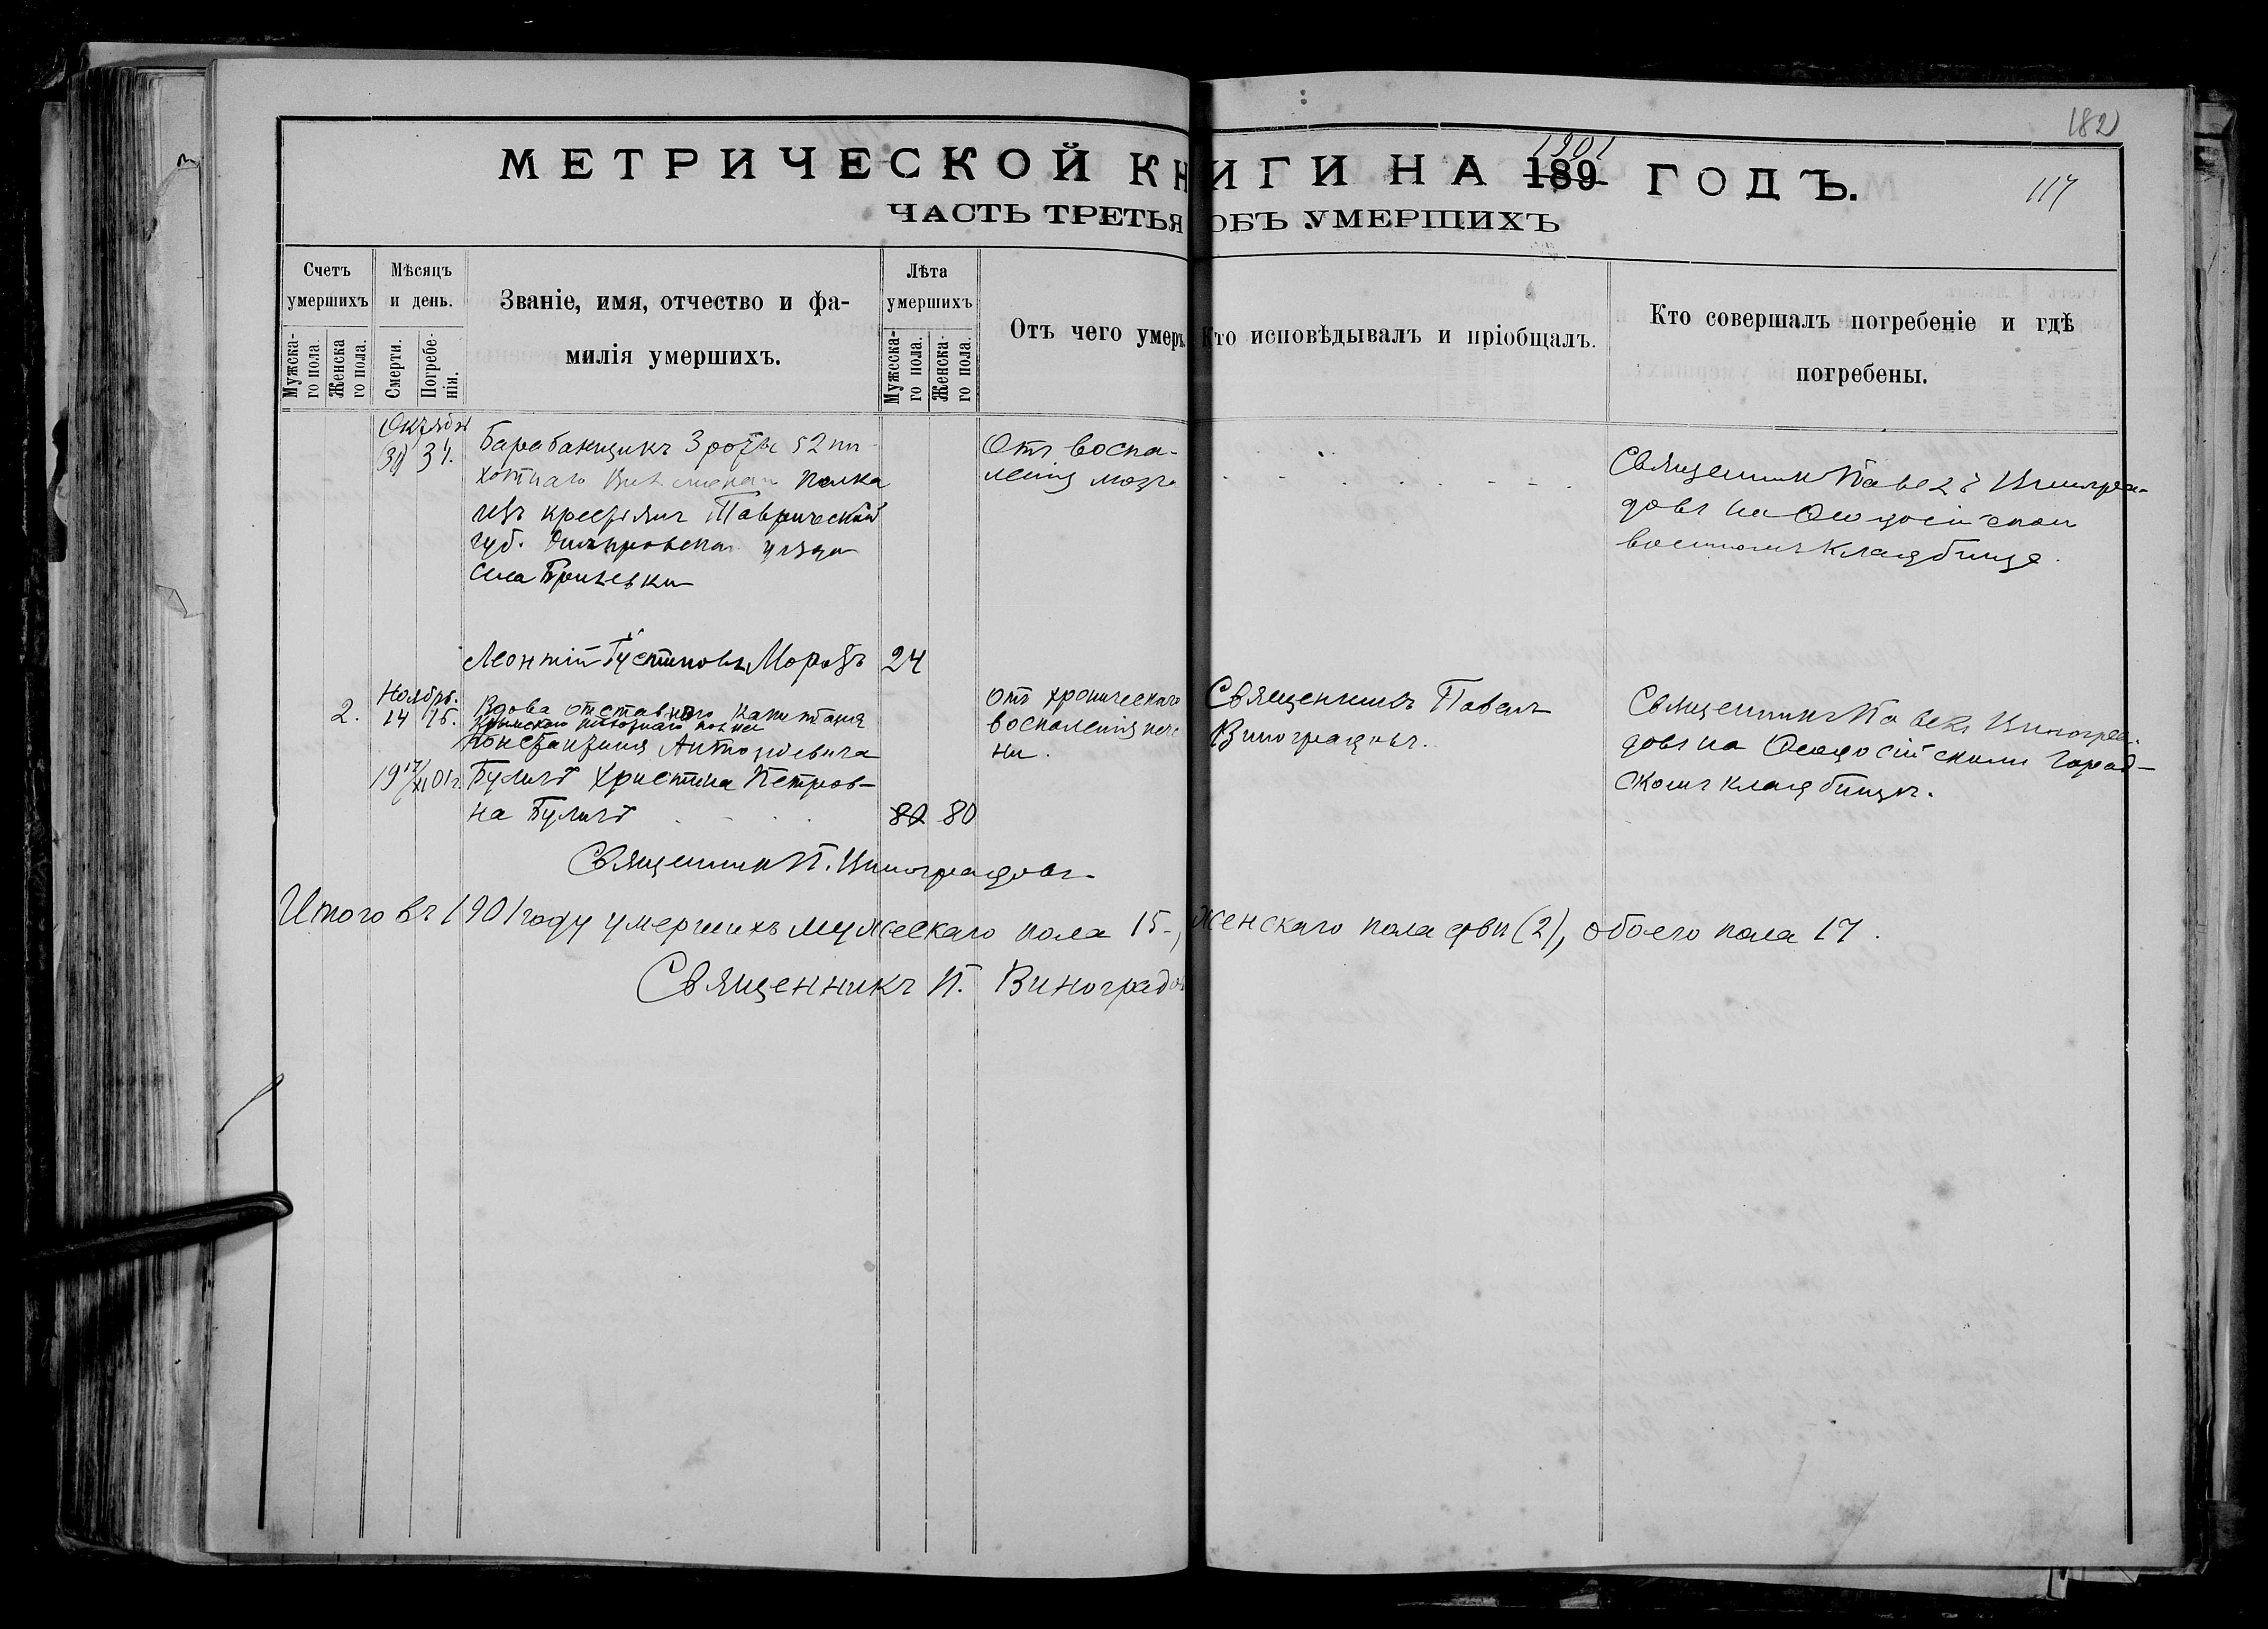 182
МЕТРИЧЕСКОЙ КНИГИ НА 189 1901 ГОДЪ.
117
ЧАСТЬ ТРЕТЬЯ ОБЪ УМЕРШИХЪ
Счетъ умершихъ
Мужскаго пола.
Женскаго пола.
Мѣсяцъ и день.
Смерти.
Погребенія.
Званіе, имя, отчество и фамилія умершихъ.
Лѣта умершихъ
Мужескаго пола.
Женскаго пола.
Отъ чего умеръ.
Кто исповѣдывалъ и пріобщалъ.
Кто совершалъ погребеніе и гдѣ погребены.
Октябр
30 31.
Барабанщикъ 3 роты 52 пѣ-
хотнаго Виленскаго полка
изъ крестьянъ Таврической
губ. Днѣпровскаго уѣзда
села
Леонтій Морозъ
24
Отъ воспа-
ленія мозга
Священникъ Павелъ Виногра-
довъ на Ѳеодосійскомъ
военномъ кладбищѣ.
2.
Ноябрь.
14 16.
Вдова отставного капитана
Крымскаго полка
Константина Антоновича
19 17/XI 01 г.
Булитъ Христина Петров-
на Булитъ
82 80
Отъ хроническаго
воспаленія пече
ни.
Священникъ Павелъ
Виноградовъ.
Священникъ Павелъ Виногра-
довъ на Ѳеодосійскомъ город-
скомъ кладбищѣ.
Священникъ П. Виноградовъ.
Итого въ 1901 году умершихъ мужескаго пола 15-, женскаго пола двѣ (2), обоего пола 17.
Священникъ П. Виноградов